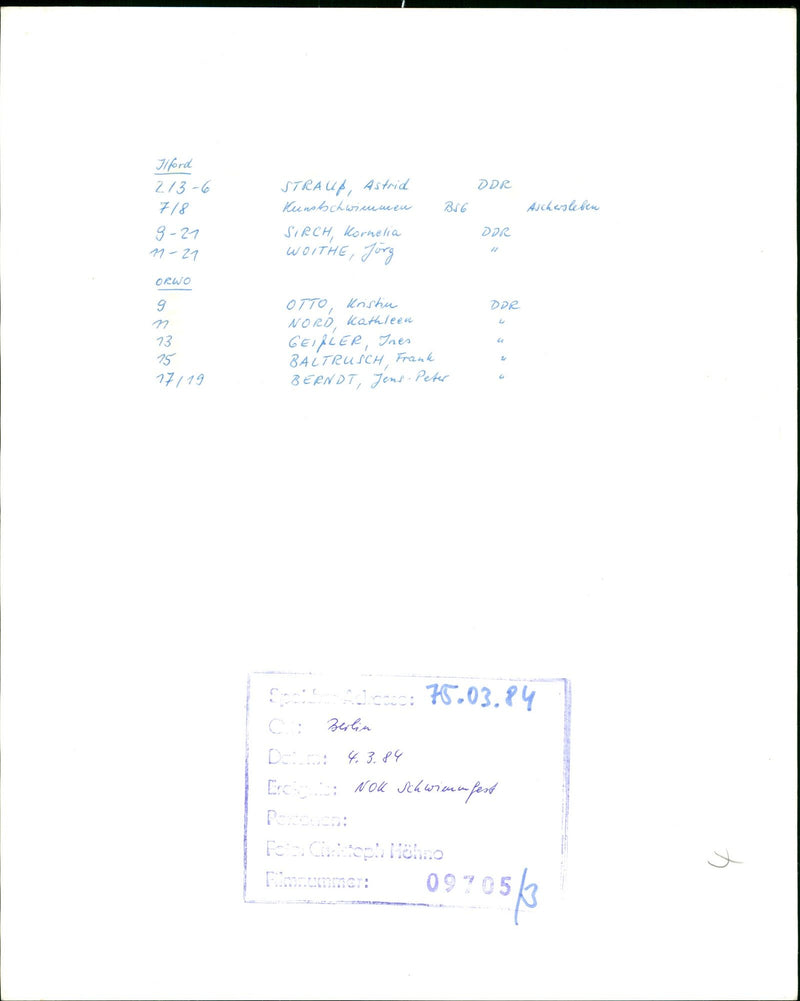 Ilford
2/3-6 STRAUß, Astrid DDR
7/8 Kunstschwimmen BSG Aschersleben
9-21 SIRCH, Kornelia DDR
11-21 WOITHE, Jörg "
ORWO
9 OTTO, Kristin DDR
11 NORD, Kathleen "
13 GEIßLER, Ines "
15 BALTRUSCH, Frank "
17/19 BERNDT, Jens-Peter "
Speicher-Adresse: 75.03.84
Ort: Berlin
Datum: 4.3.84
Ereignis: NOK Schwimmfest
Personen:
Foto: Christoph Höhne
Filmnummer: 09705/3